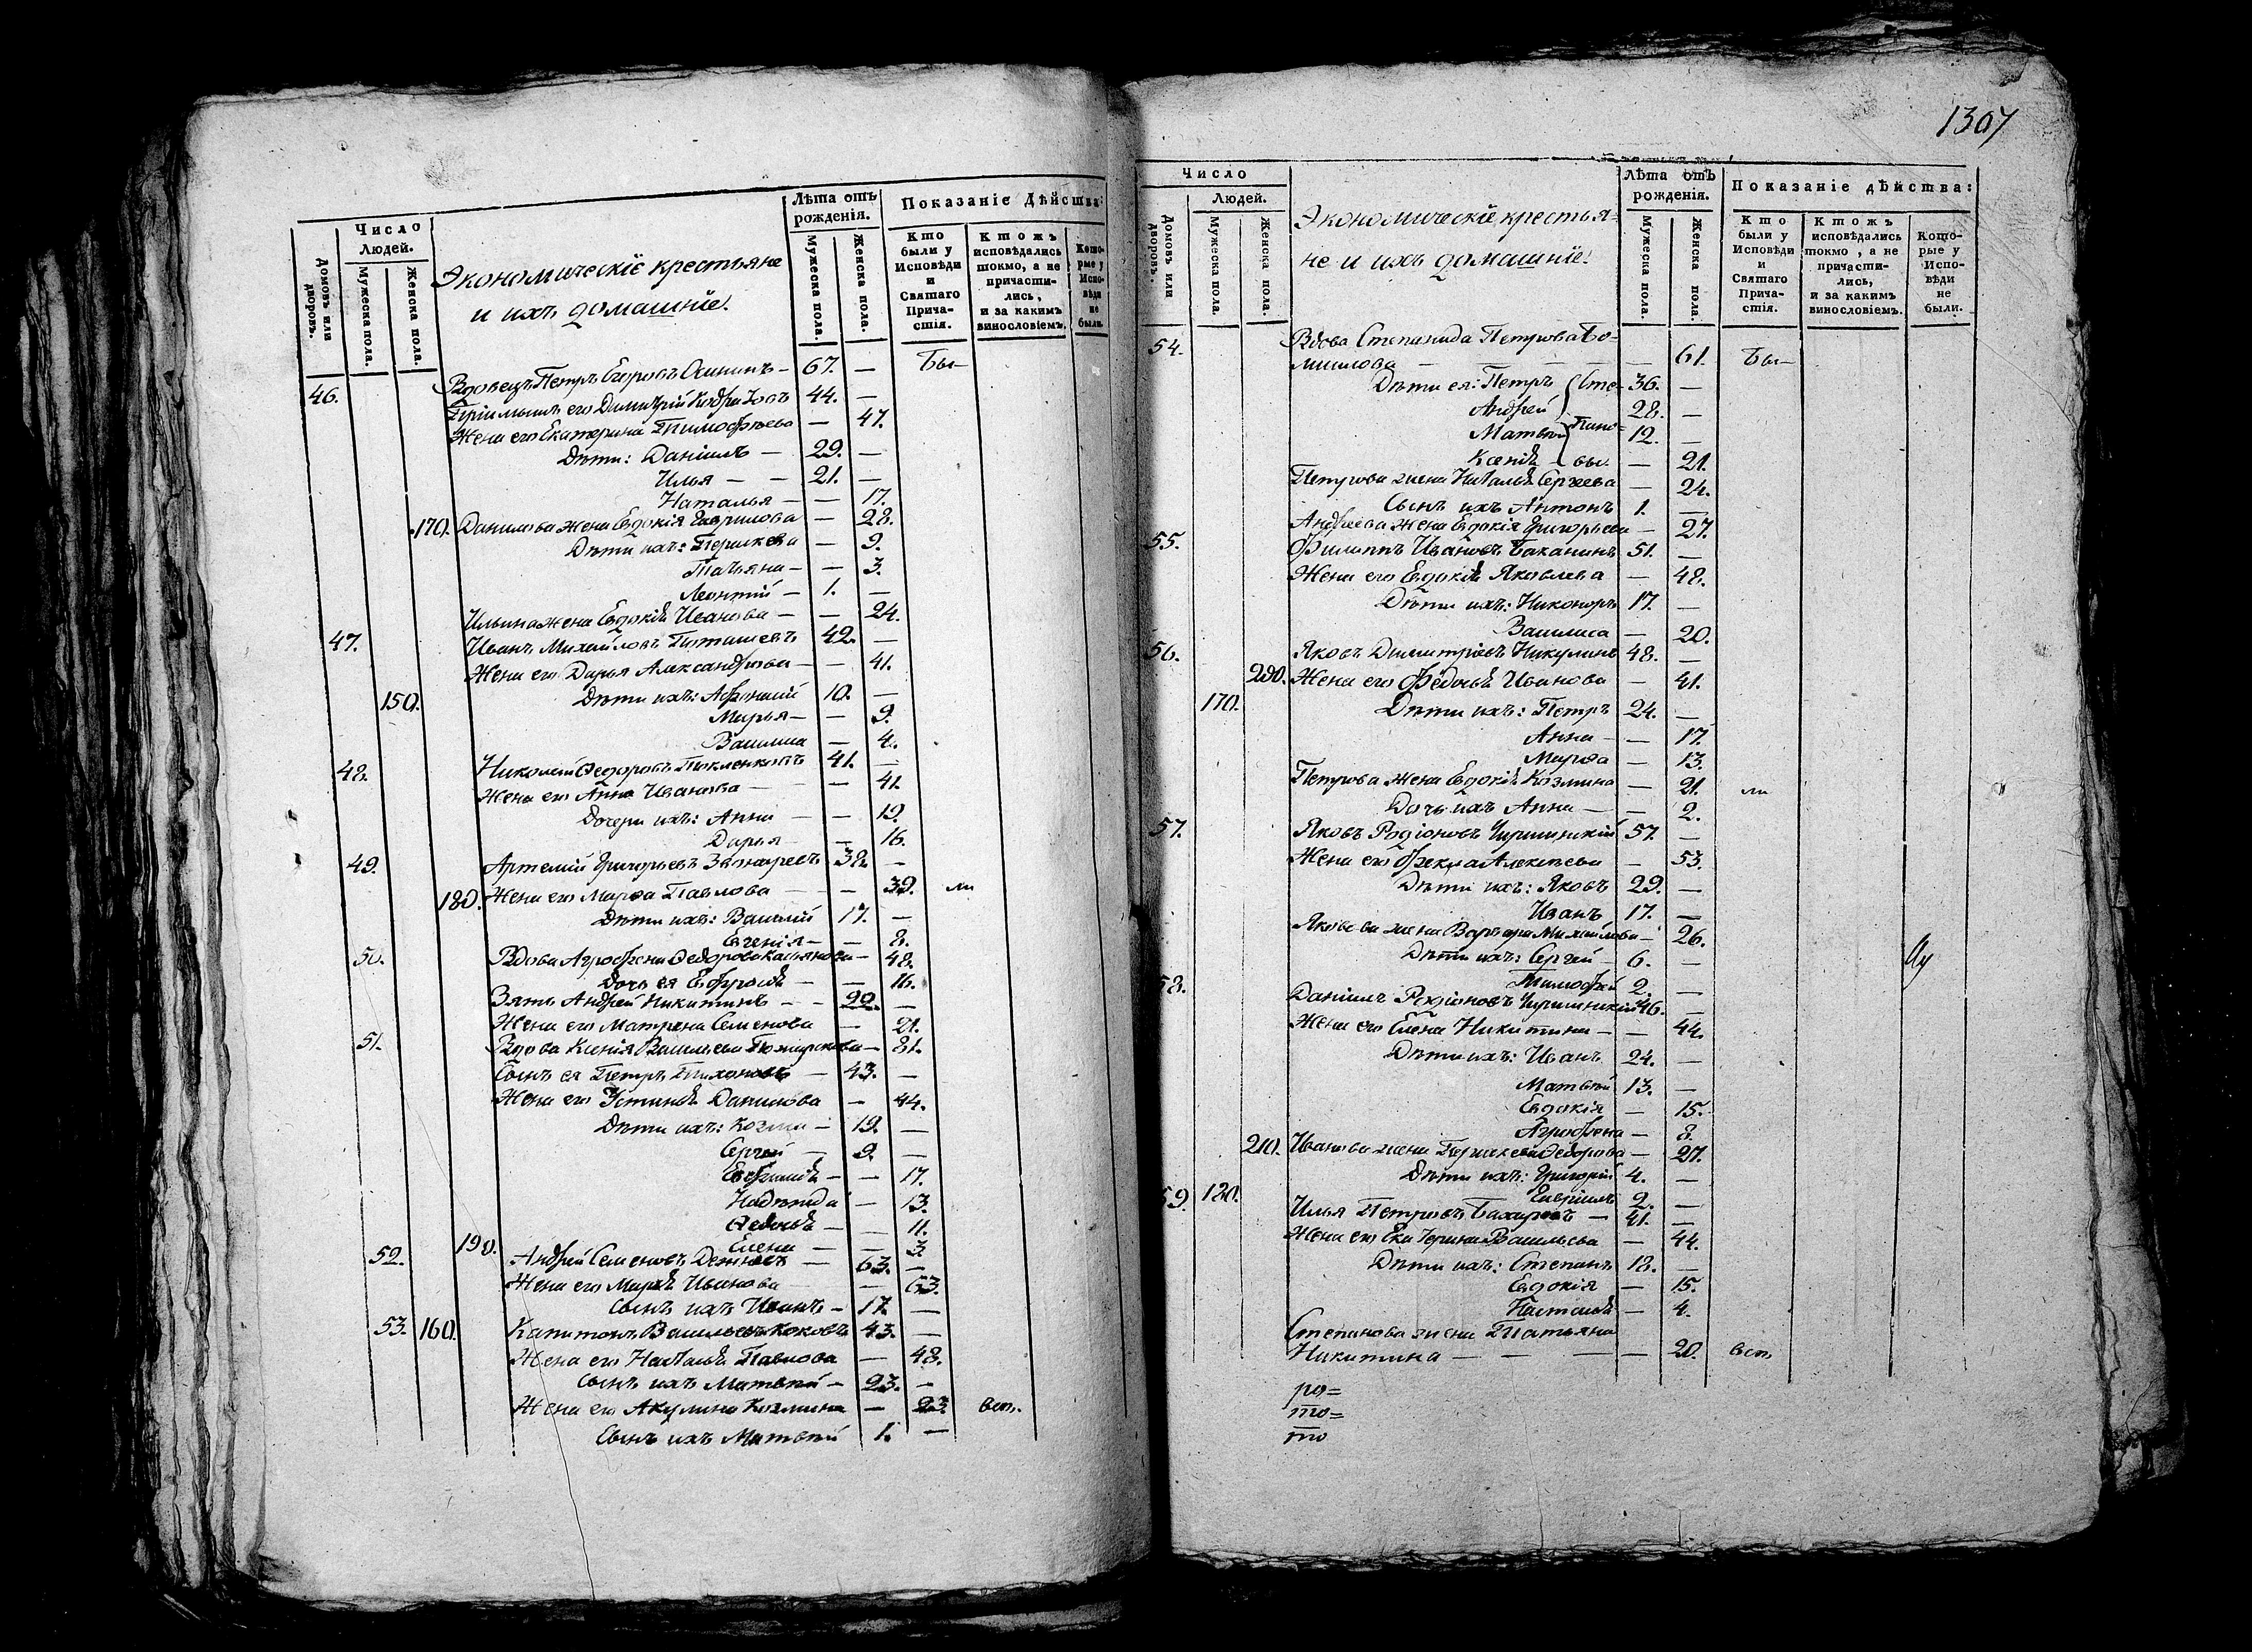 Число
Людей.
Домовъ или дворовъ.
Мужеска пола.
Женска пола.
Экономическіе крестьяне
и ихъ домашніе:
Лѣта отъ рожденія.
Мужеска пола.
Женска пола.
Показаніе Дѣйства:
Кто были у Исповѣди и Святаго Прича-стія.
Ктожъ исповѣдались токмо, а не причасти-лись, и за какимъ винословіемъ.
Кото-рые у Испо-вѣди не были.
46. Вдовецъ Петръ Егоровъ — 67. — Бы—
его Димитрій 44. —
Жена его Екатерина Тимофѣева — 47.
Дѣти: Даніилъ — 29. —
Илья — — 21. —
Наталья — — 17.
170. Данилова жена Евдокія Гаврилова — 28.
Дѣти ихъ: — 9.
Татьяна — — 3.
Леонтій — 1. —
Ильина жена Евдокія Иванова — — 24.
47. Иванъ Михайловъ 42. —
Жена его Дарья Александрова — — 41.
150. Дѣти ихъ: Афонасій 10. —
Марья — — 9.
Василиса — 4.
48. Николай Ѳедоровъ 41. —
Жена его Анна Иванова — — 41.
Дочери ихъ: Анна — — 19.
Дарья — — 16.
49. Артемій Григорьевъ 38. —
180. Жена его Марѳа Павлова — — 39. ли
Дѣти ихъ: Василій 17. —
Евгенія — — 8.
50. Вдова Агрофена Ѳедорова — 48.
Дочь ея — — 16.
Зять Андрей Никитинъ — — 22. —
Жена его Матрена Семенова — 21.
51. Вдова Ксенія Васильева — 81.
Сынъ ея Петръ Тихоновъ — 43. —
Жена его Устинья Данилова — 44.
Дѣти ихъ: Козма — 19. —
Сергей — 9. —
— — 17.
Надежда — 13.
Ѳедосья — — 11.
190. Елена — — 3.
52. Андрей Семеновъ — 63. —
Жена его Марья Иванова — 63.
Сынъ ихъ Иванъ — 17. —
53. 160. Капитонъ Васильевъ Коковъ 43. —
Жена его Наталья Павлова — 48.
Сынъ ихъ Матвѣй — 23. —
Жена его Акулина Козмина — 23. вст.
Сынъ ихъ Матвѣй 1. —
1307
Число
Людей.
Домовъ или дворовъ.
Мужеска пола.
Женска пола.
Экономическіе крестья=
не и ихъ домашніе:
Лѣта отъ рожденія.
Мужеска пола.
Женска пола.
Показаніе дѣйства:
Кто были у Исповѣди и Святаго Прича-стія.
Ктожъ исповѣдались токмо, а не причасти-лись, и за какимъ винословіемъ.
Кото-рые у Испо-вѣди не были.
54. Вдова Степанида Петрова
— — — — 61. Бы—
Дѣти ея: Петръ Сте= 36. —
Андрей 28. —
Матвѣй пано= 12. —
Ксенія — вы. — 21.
Петрова жена Наталья Сергеева — 24.
Сынъ ихъ Антонъ 1. —
Андреева жена Евдокія Григорьева — 27.
55. Филиппъ Ивановъ Баканинъ 51. —
Жена его Евдокія Яковлева — 48.
Дѣти ихъ: Никоноръ 17. —
Василиса — 20.
56. Яковъ Димитріевъ Никулинъ 48. —
200. Жена его Ѳедосья Иванова — 41.
170. Дѣти ихъ: Петръ 24. —
Анна — — 17.
Марѳа — 13.
Петрова жена Евдокія Козмина — 21. ли
Дочь ихъ Анна — — 2.
57. Яковъ Родіоновъ 57. —
Жена его Фекла Алексѣева — 53.
Дѣти ихъ: Яковъ 29. —
Иванъ 17. —
Яковлева жена Варвара Михайлова — 26.
Дѣти ихъ: Сергей — 6. —
Тимофей 2. —
58. Даніилъ Родіоновъ 46. —
Жена его Елена Никитина — — 44.
Дѣти ихъ: Иванъ 24. —
Матвѣй 13. —
Евдокія — 15.
Агрофена — 8.
210. Иванова жена Ѳедорова — 27.
Дѣти ихъ: Григорій 4. —
Гавріилъ 2. —
59. 180. Илья Петровъ Бахаревъ — 41. —
Жена его Екатерина Васильева — 44.
Дѣти ихъ: Степанъ 18. —
Евдокія — 15.
Настасья — 4.
Степанова жена Татьяна
Никитина — — — — 20. вст.
ро=
то=
то